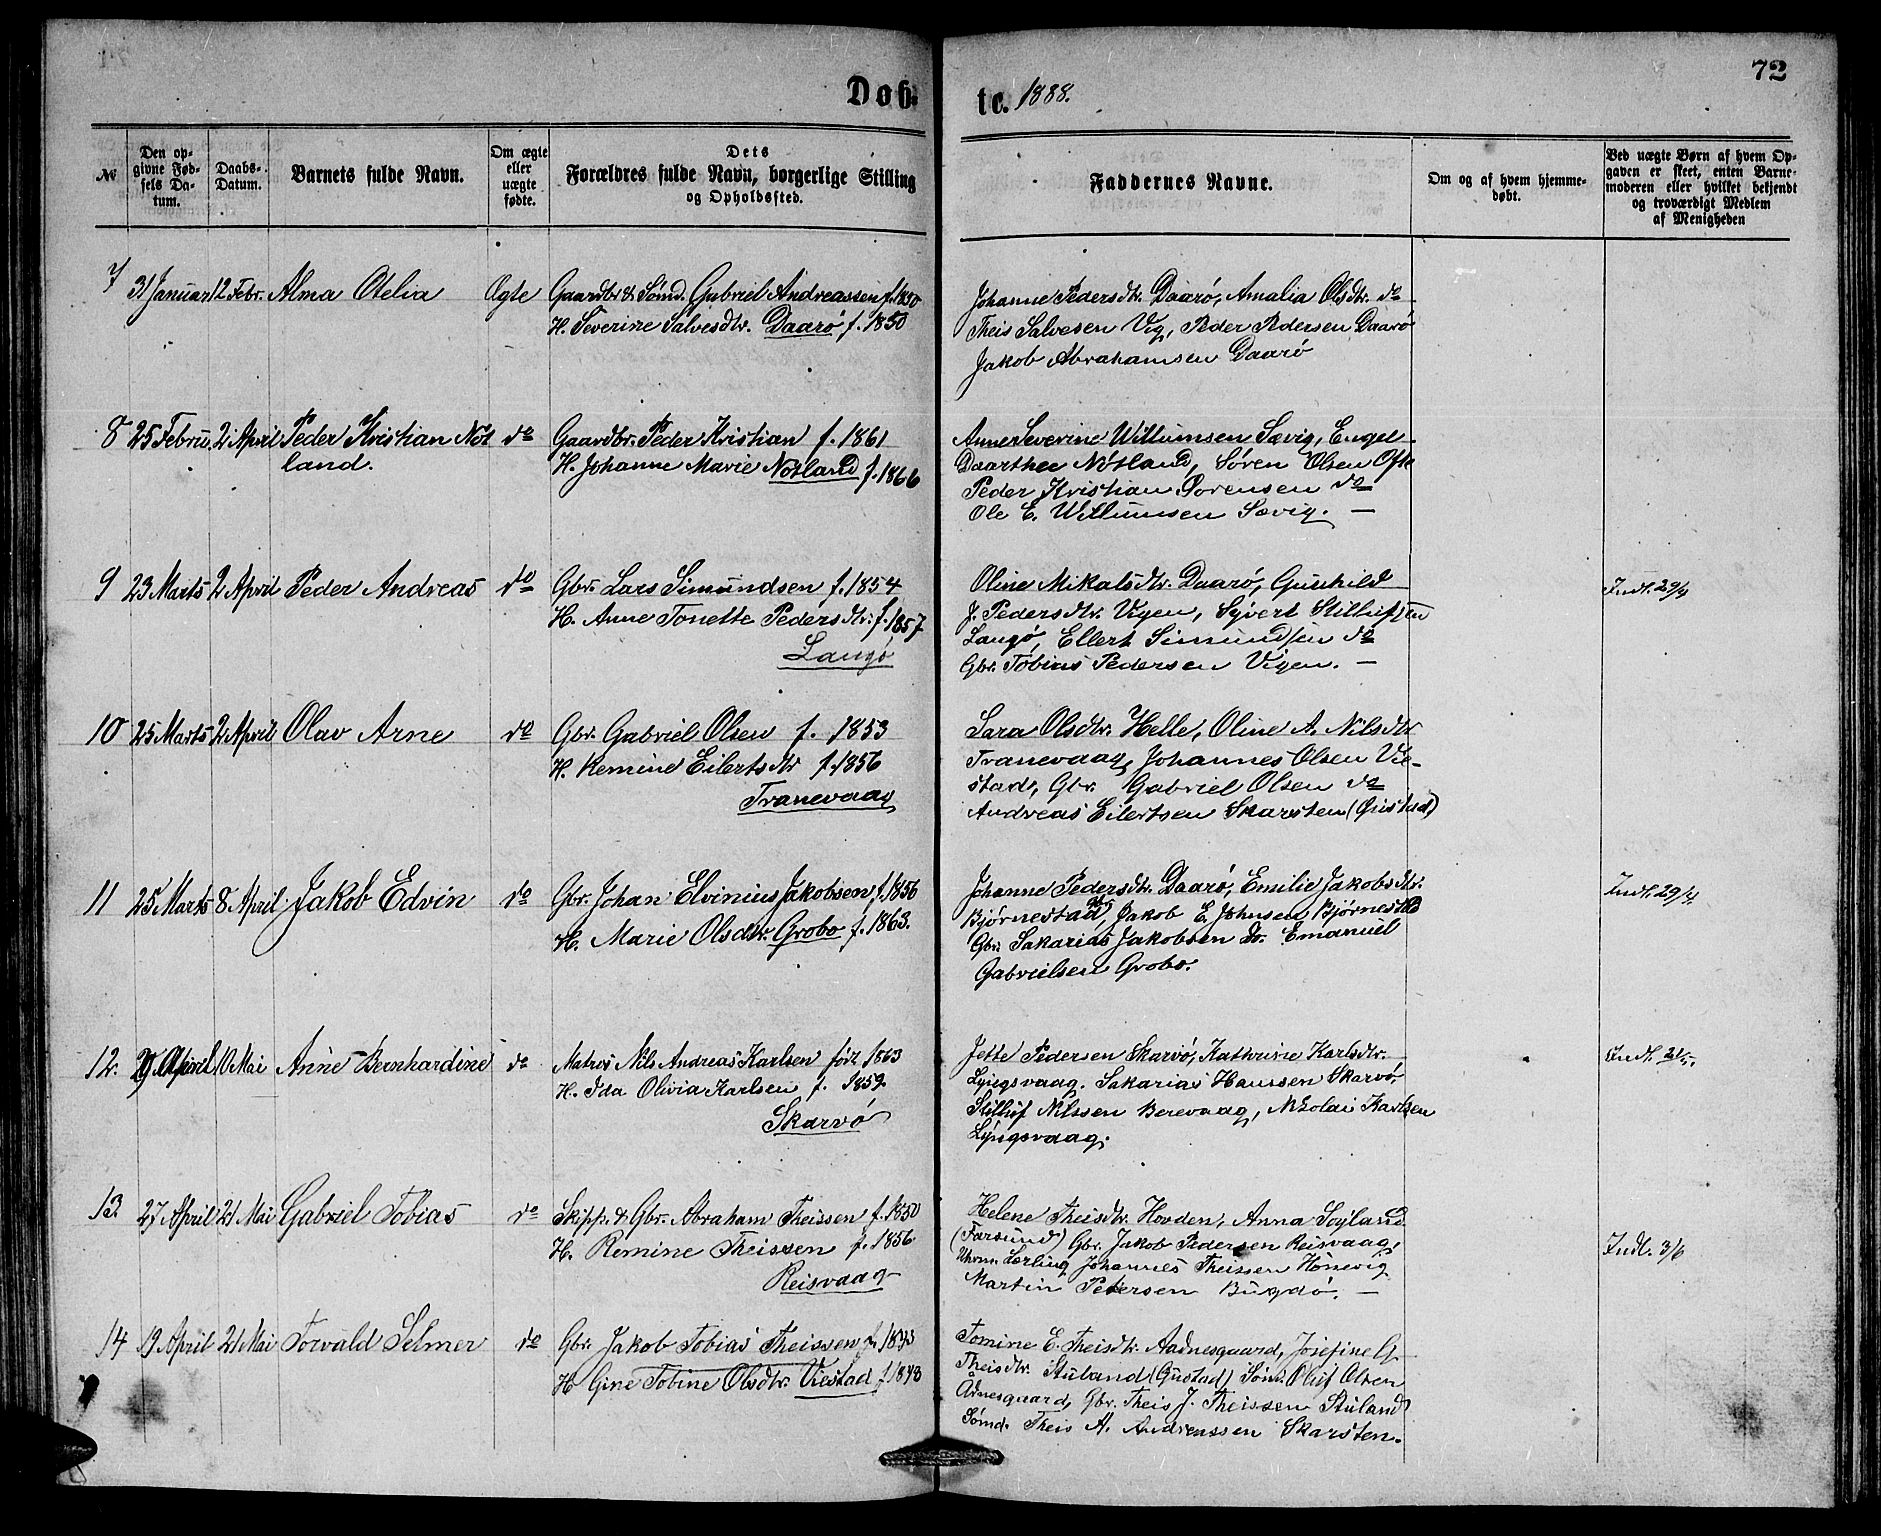 72
Døb-
te. 1888.
№
Den op-
givne Fød-
sels Da-
tum.
Daabs-
Datum.
Barnets fulde Navn.
Om ægte
eller
uægte
fødte.
Dets
Forældres fulde Navn, borgerlige Stilling
og Opholdssted.
Faddernes Navne.
Om og af hvem hjemme-
døbt.
Ved uægte Børn af hvem Op-
gaven er skeet, enten Barne-
moderen eller hvilket bekjendt
og troværdigt Medlem
af Menigheden
7 31 Januar 12 Febr. Alma Otelia Ægte Gaardbr. & Sømd. Gabriel Andreassen f. 1850
H. Severine Salvesdtr. Daarø f. 1850
Johanne Pedersdtr. Daarø, Amalia Olsdtr. do
Theis Salvesen Vig, Peder Pedersen Daarø
Jakob Abrahamsen Daarø
8 25 Febru. 2 April Peder Kristian Nøt
land. do Gaardbr. Peder Kristian f. 1861
H. Johanne Marie Nøtland f. 1866
Anne Severine Willumsen Sævig, Engel
Daarthee Nøtland, Søren Olsen Ofte
Peder Kristian Sørensen do
Ole E. Willumsen Sævig. —
9 23 Marts 2 April Peder Andreas do Gbr. Lars Simundsen f. 1854
H. Anne Tonette Pedersdtr. f. 1857
Langø
Oline Mikalsdtr. Daarø, Gunhild
J. Pedersdtr. Vigen, Syvert Stillufsen
Langø, Ellert Simundsen do
Gbr. Tobias Pedersen Vigen. —
Indl. 29/4
10 25 Marts 2 April Olav Arne do Gbr. Gabriel Olsen f. 1853
H. Remine Eilertsdtr f. 1856
Tranevaag
Sara Olsdtr. Helle, Oline A. Nilsdtr
Tranevaag, Johannes Olsen Vie-
stad, Gbr. Gabriel Olsen do
Andreas Eilertsen Skarsten (Gustad)
11 25 Marts 8 April Jakob Edvin do Gbr. Johan Elvinius Jakobsen f. 1856
H. Marie Olsdtr. Grobo f. 1863.
Johanne Pedersdtr. Daarø, Emilie Jakobsdtr.
Bjørnestad, Gbr. Jakob E. Johnsen Bjørnestad
Gbr. Sakarias Jakobsen Do. Emanuel
Gabrielsen Grobo.
Indl. 29/4
12. April 10 Mai Anne Bernhardine do Matros Nils Andreas Karlsen født 1863
H. Ida Olivia Karlsen f. 1859
Skarvø
Jette Pedersen Skarvø, Kathrine Karlsdtr.
Lyngsvaag. Sakarias Hanssen Skarvø,
Stilluf Nilssen Berevaag, Nikolai Karlsen
Lyngsvaag.
Indl. 21/5.
13. 27 April 21 Mai Gabriel Tobias do Skipp. & Gbr. Abraham Theissen f. 1850
H. Remine Theissen f. 1856
Reisvaag
Helene Theisdtr. Hovden, Anna Soyland
(Farsund) Gbr. Jakob Pedersen Reisvaag,
Lærling Johannes Theissen Hønevig
Martin Petersen Bugdø. —
Indl. 3/6
14 19 April 21 Mai Torvald Selmer do Gbr. Jakob Tobias Theissen f. 1843
H Gine Tobine Olsdtr. Viestad f 1843
Tomine E. Theisdtr. Aadnesgaard, Josefine G
Theisdtr. Stuland (Gustad) Sømd. Oluf Olsen
Adnesgaard, Gbr. Theis J. Theissen Stuland
Sømd. Theis A. Andreassen Skarsten.